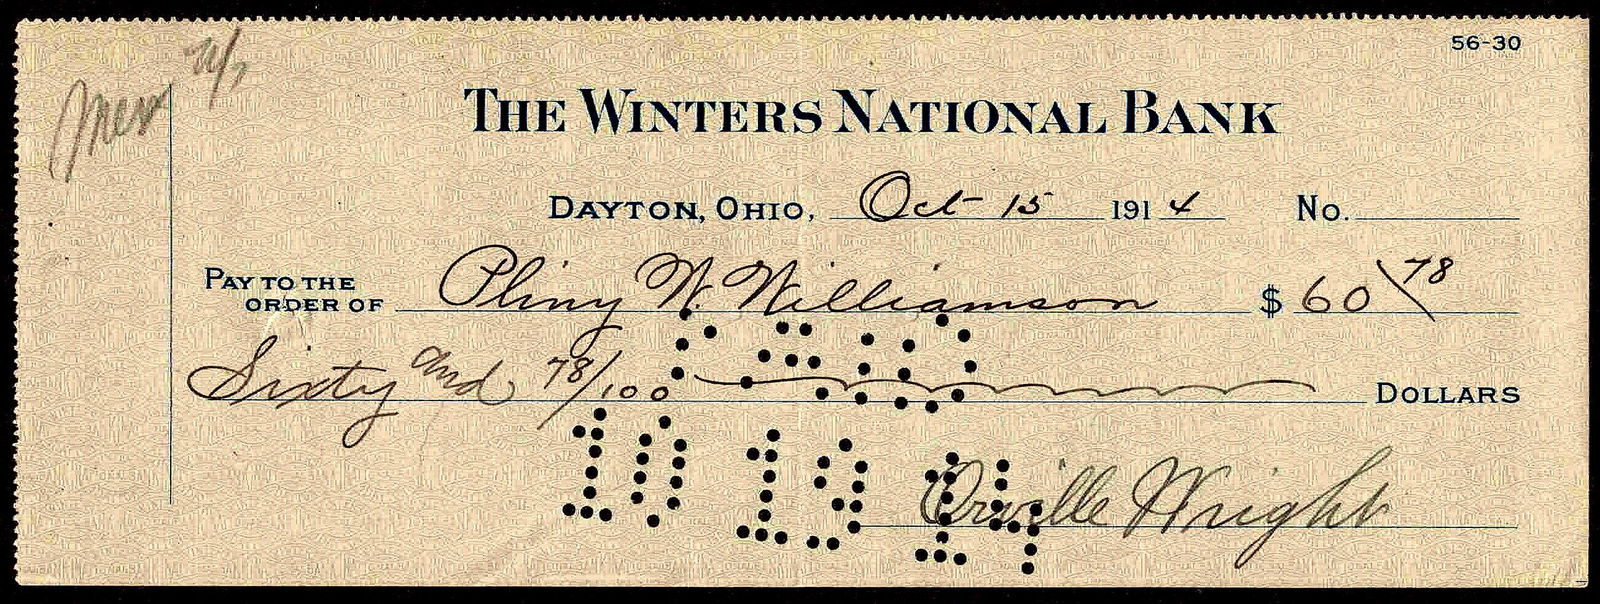 56-30
THE WINTERS NATIONAL BANK
DAYTON, OHIO, Oct 15 1914 No.
PAY TO THE ORDER OF Pliny W. Williamson $ 60 78
Sixty and 78/100 DOLLARS
PAID
10 19 14
Orville Wright